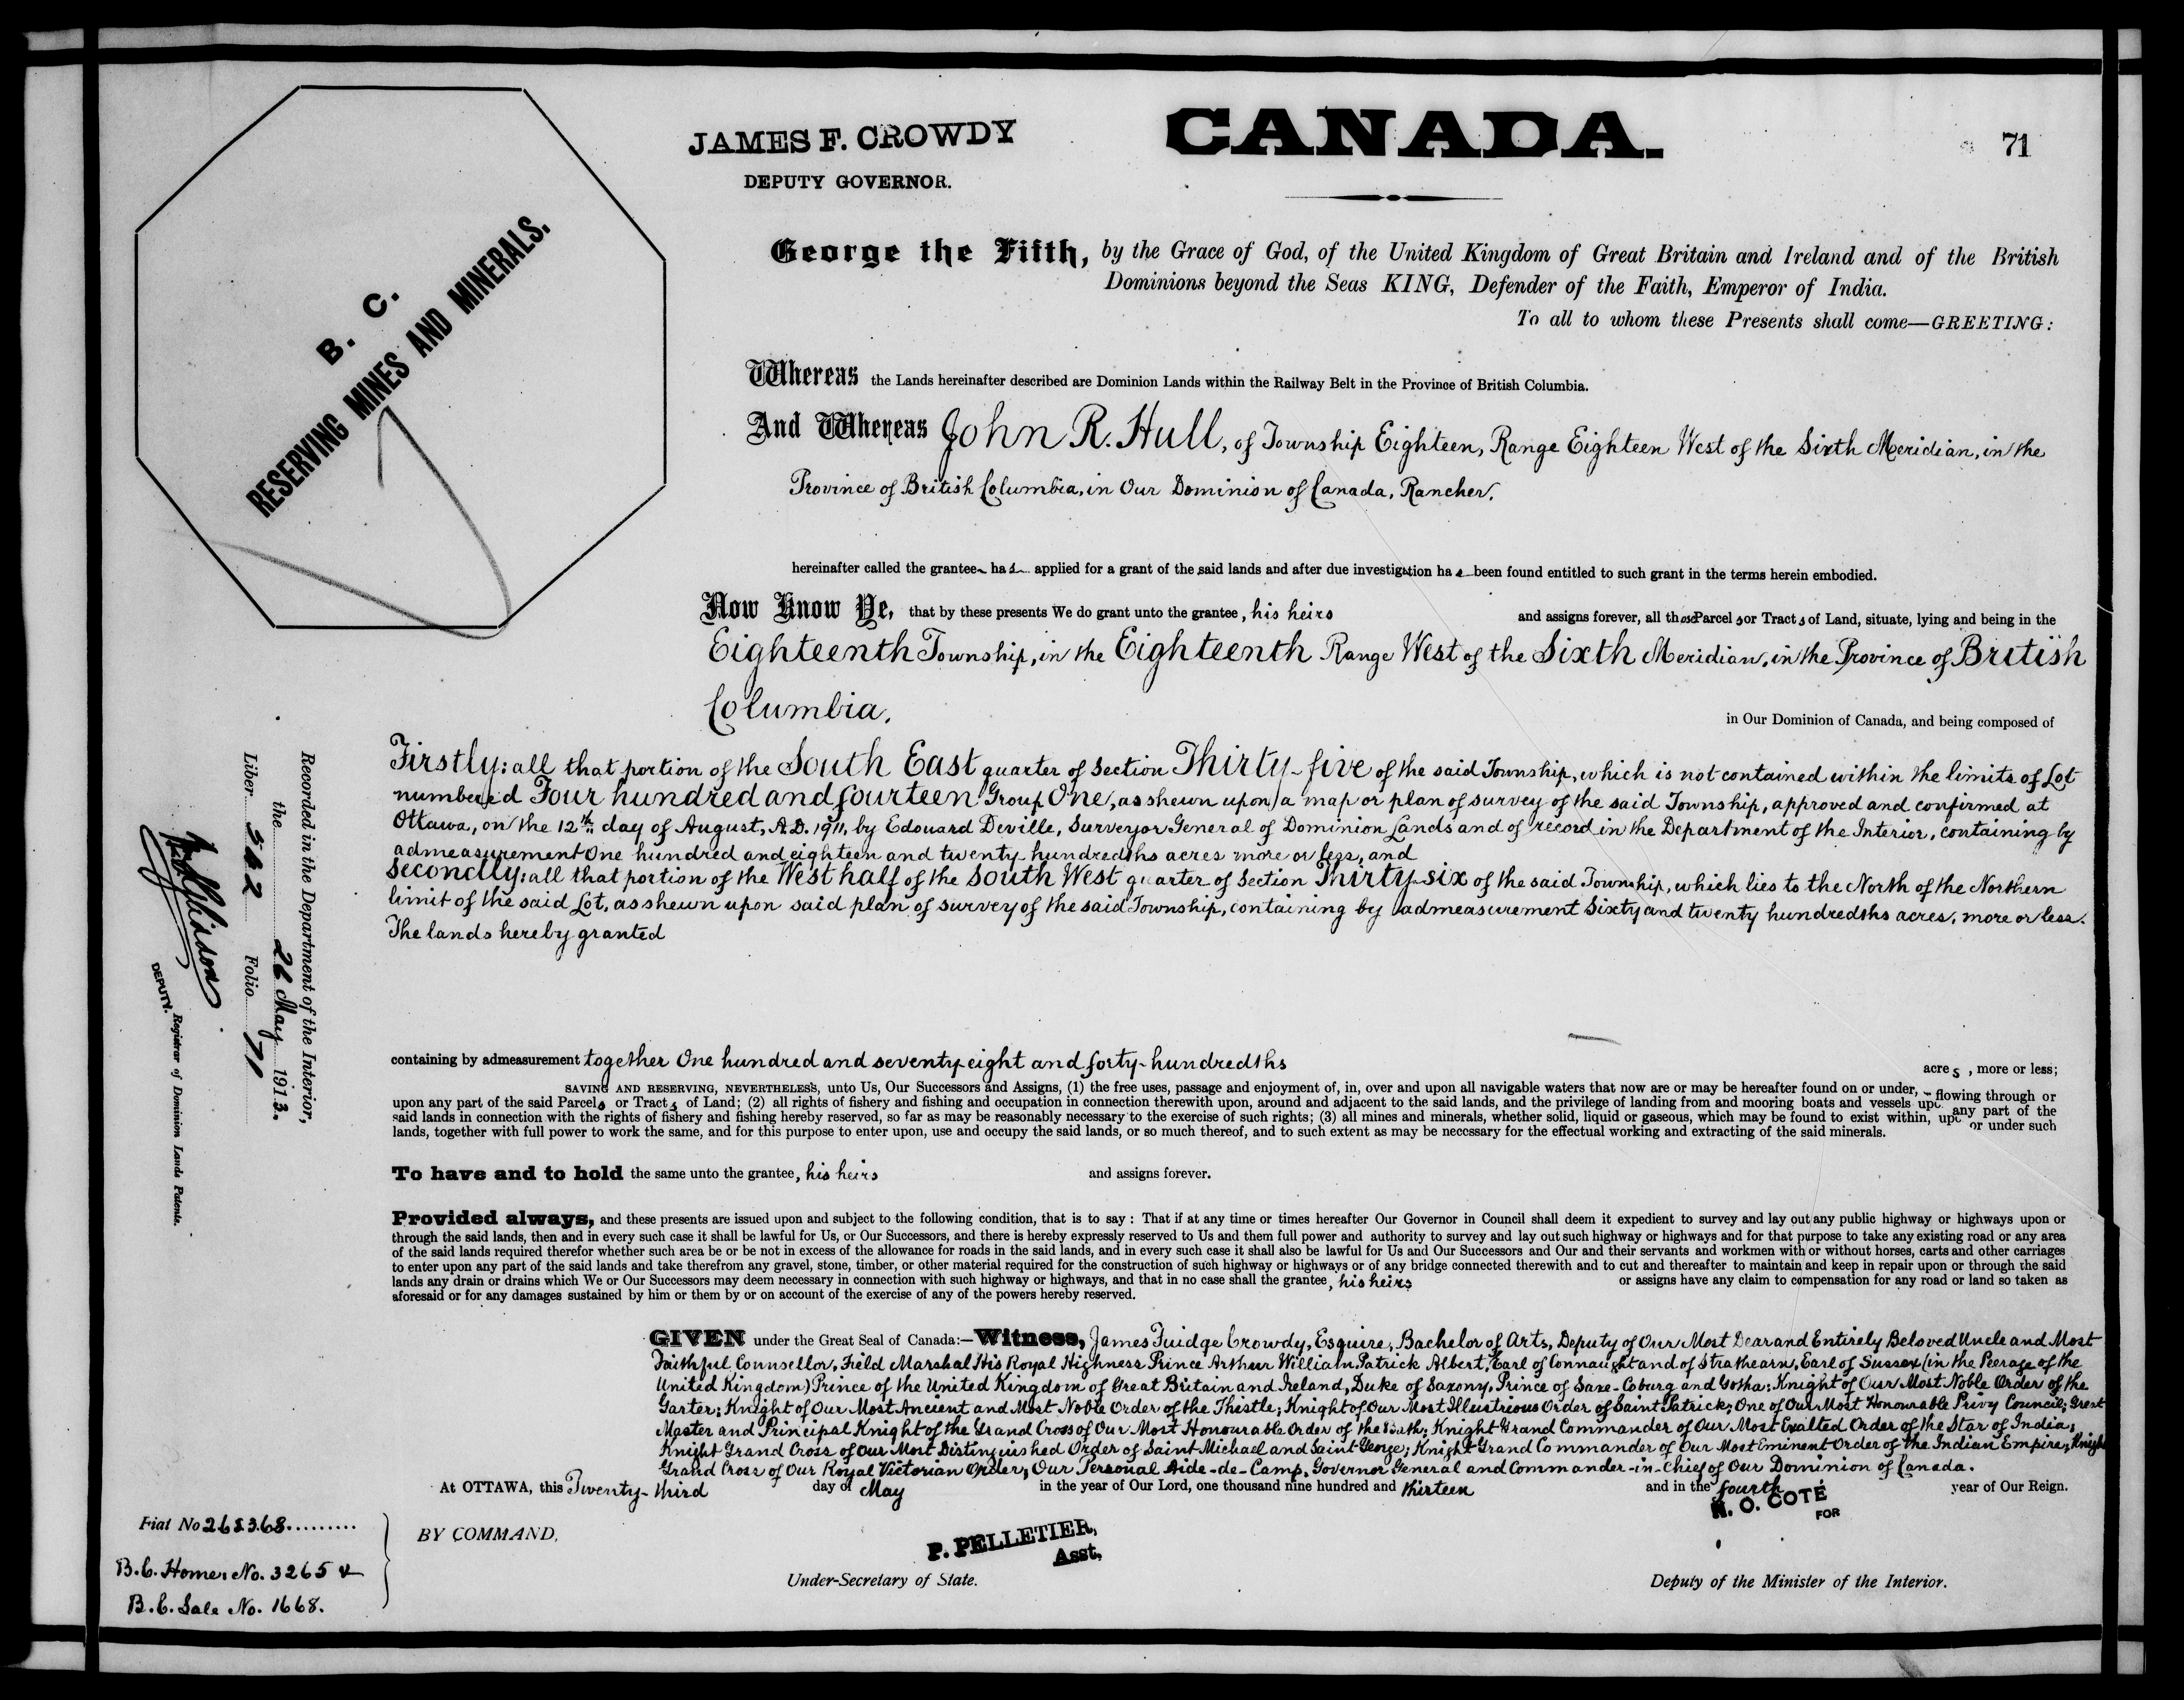 JAMES F. CROWDY
DEPUTY GOVERNOR.
CANADA.
71
B. C.
RESERVING MINES AND MINERALS.
George the Fifth, by the Grace of God, of the United Kingdom of Great Britain and Ireland and of the British
Dominions beyond the Seas KING, Defender of the Faith, Emperor of India.
To all to whom these Presents shall come—GREETING:
Whereas the Lands hereinafter described are Dominion Lands within the Railway Belt in the Province of British Columbia.
And Whereas John R. Hull, of Township Eighteen, Range Eighteen West of the Sixth Meridian, in the
Province of British Columbia, in Our Dominion of Canada, Rancher,
hereinafter called the grantee has applied for a grant of the said lands and after due investigation has been found entitled to such grant in the terms herein embodied.
Now Know Ye, that by these presents We do grant unto the grantee, his heirs and assigns forever, all those Parcels or Tracts of Land, situate, lying and being in the
Eighteenth Township, in the Eighteenth Range West of the Sixth Meridian, in the Province of British
Columbia, in Our Dominion of Canada, and being composed of
Firstly: all that portion of the South East quarter of Section Thirty-five of the said Township, which is not contained within the limits of Lot
numbered Four hundred and fourteen Group One, as shewn upon a map or plan of survey of the said Township, approved and confirmed at
Ottawa, on the 12th day of August, A.D. 1911, by Edouard Deville, Surveyor General of Dominion Lands and of record in the Department of the Interior, containing by
admeasurement One hundred and eighteen and twenty hundredths acres more or less, and
Secondly: all that portion of the West half of the South West quarter of Section Thirty-six of the said Township, which lies to the North of the Northern
limit of the said Lot, as shewn upon said plan of survey of the said Township, containing by admeasurement Sixty and twenty hundredths acres, more or less.
The lands hereby granted
containing by admeasurement together One hundred and seventy-eight and forty-hundredths acres, more or less;
SAVING AND RESERVING, NEVERTHELESS, unto Us, Our Successors and Assigns, (1) the free uses, passage and enjoyment of, in, over and upon all navigable waters that now are or may be hereafter found on or under, flowing through or
upon any part of the said Parcels or Tracts of Land; (2) all rights of fishery and fishing and occupation in connection therewith upon, around and adjacent to the said lands, and the privilege of landing from and mooring boats and vessels upo any part of the
said lands in connection with the rights of fishery and fishing hereby reserved, so far as may be reasonably necessary to the exercise of such rights; (3) all mines and minerals, whether solid, liquid or gaseous, which may be found to exist within, upo or under such
lands, together with full power to work the same, and for this purpose to enter upon, use and occupy the said lands, or so much thereof, and to such extent as may be necessary for the effectual working and extracting of the said minerals.
To have and to hold the same unto the grantee, his heirs and assigns forever.
Provided always, and these presents are issued upon and subject to the following condition, that is to say: That if at any time or times hereafter Our Governor in Council shall deem it expedient to survey and lay out any public highway or highways upon or
through the said lands, then and in every such case it shall be lawful for Us, or Our Successors, and there is hereby expressly reserved to Us and them full power and authority to survey and lay out such highway or highways and for that purpose to take any existing road or any area
of the said lands required therefor whether such area be or be not in excess of the allowance for roads in the said lands, and in every such case it shall also be lawful for Us and Our Successors and Our and their servants and workmen with or without horses, carts and other carriages
to enter upon any part of the said lands and take therefrom any gravel, stone, timber, or other material required for the construction of such highway or highways or of any bridge connected therewith and to cut and thereafter to maintain and keep in repair upon or through the said
lands any drain or drains which We or Our Successors may deem necessary in connection with such highway or highways, and that in no case shall the grantee, his heirs or assigns have any claim to compensation for any road or land so taken as
aforesaid or for any damages sustained by him or them by or on account of the exercise of any of the powers hereby reserved.
GIVEN under the Great Seal of Canada:—Witness, James Fuidge Crowdy, Esquire, Bachelor of Arts, Deputy of Our Most Dear and Entirely Beloved Uncle and Most
Faithful Counsellor, Field Marshal His Royal Highness Prince Arthur William Patrick Albert, Earl of Connaught and of Strathearn, Earl of Sussex (in the Peerage of the
United Kingdom) Prince of the United Kingdom of Great Britain and Ireland, Duke of Saxony, Prince of Saxe-Coburg and Gotha; Knight of Our Most Noble Order of the
Garter; Knight of Our Most Ancient and Most Noble Order of the Thistle; Knight of Our Most Illustrious Order of Saint Patrick; One of Our Most Honourable Privy Council; Great
Master and Principal Knight of the Grand Cross of Our Most Honourable Order of the Bath; Knight Grand Commander of Our Most Exalted Order of the Star of India;
Knight Grand Cross of Our Most Distinguished Order of Saint Michael and Saint George; Knight Grand Commander of Our Most Eminent Order of the Indian Empire; Knight
Grand Cross of Our Royal Victorian Order; Our Personal Aide-de-Camp, Governor General and Commander-in-Chief of Our Dominion of Canada.
At OTTAWA, this Twenty-third day of May in the year of Our Lord, one thousand nine hundred and thirteen and in the fourth year of Our Reign.
BY COMMAND,
P. PELLETIER,
Asst,
Under-Secretary of State.
N. O. COTÉ
FOR
Deputy of the Minister of the Interior.
Recorded in the Department of the Interior,
the 26 May 1913.
Liber 562 Folio 71
DEPUTY. Registrar of Dominion Lands Patents.
Fiat No 268368
B.C. Homes No. 3265 &
B.C. Sale No. 1668.